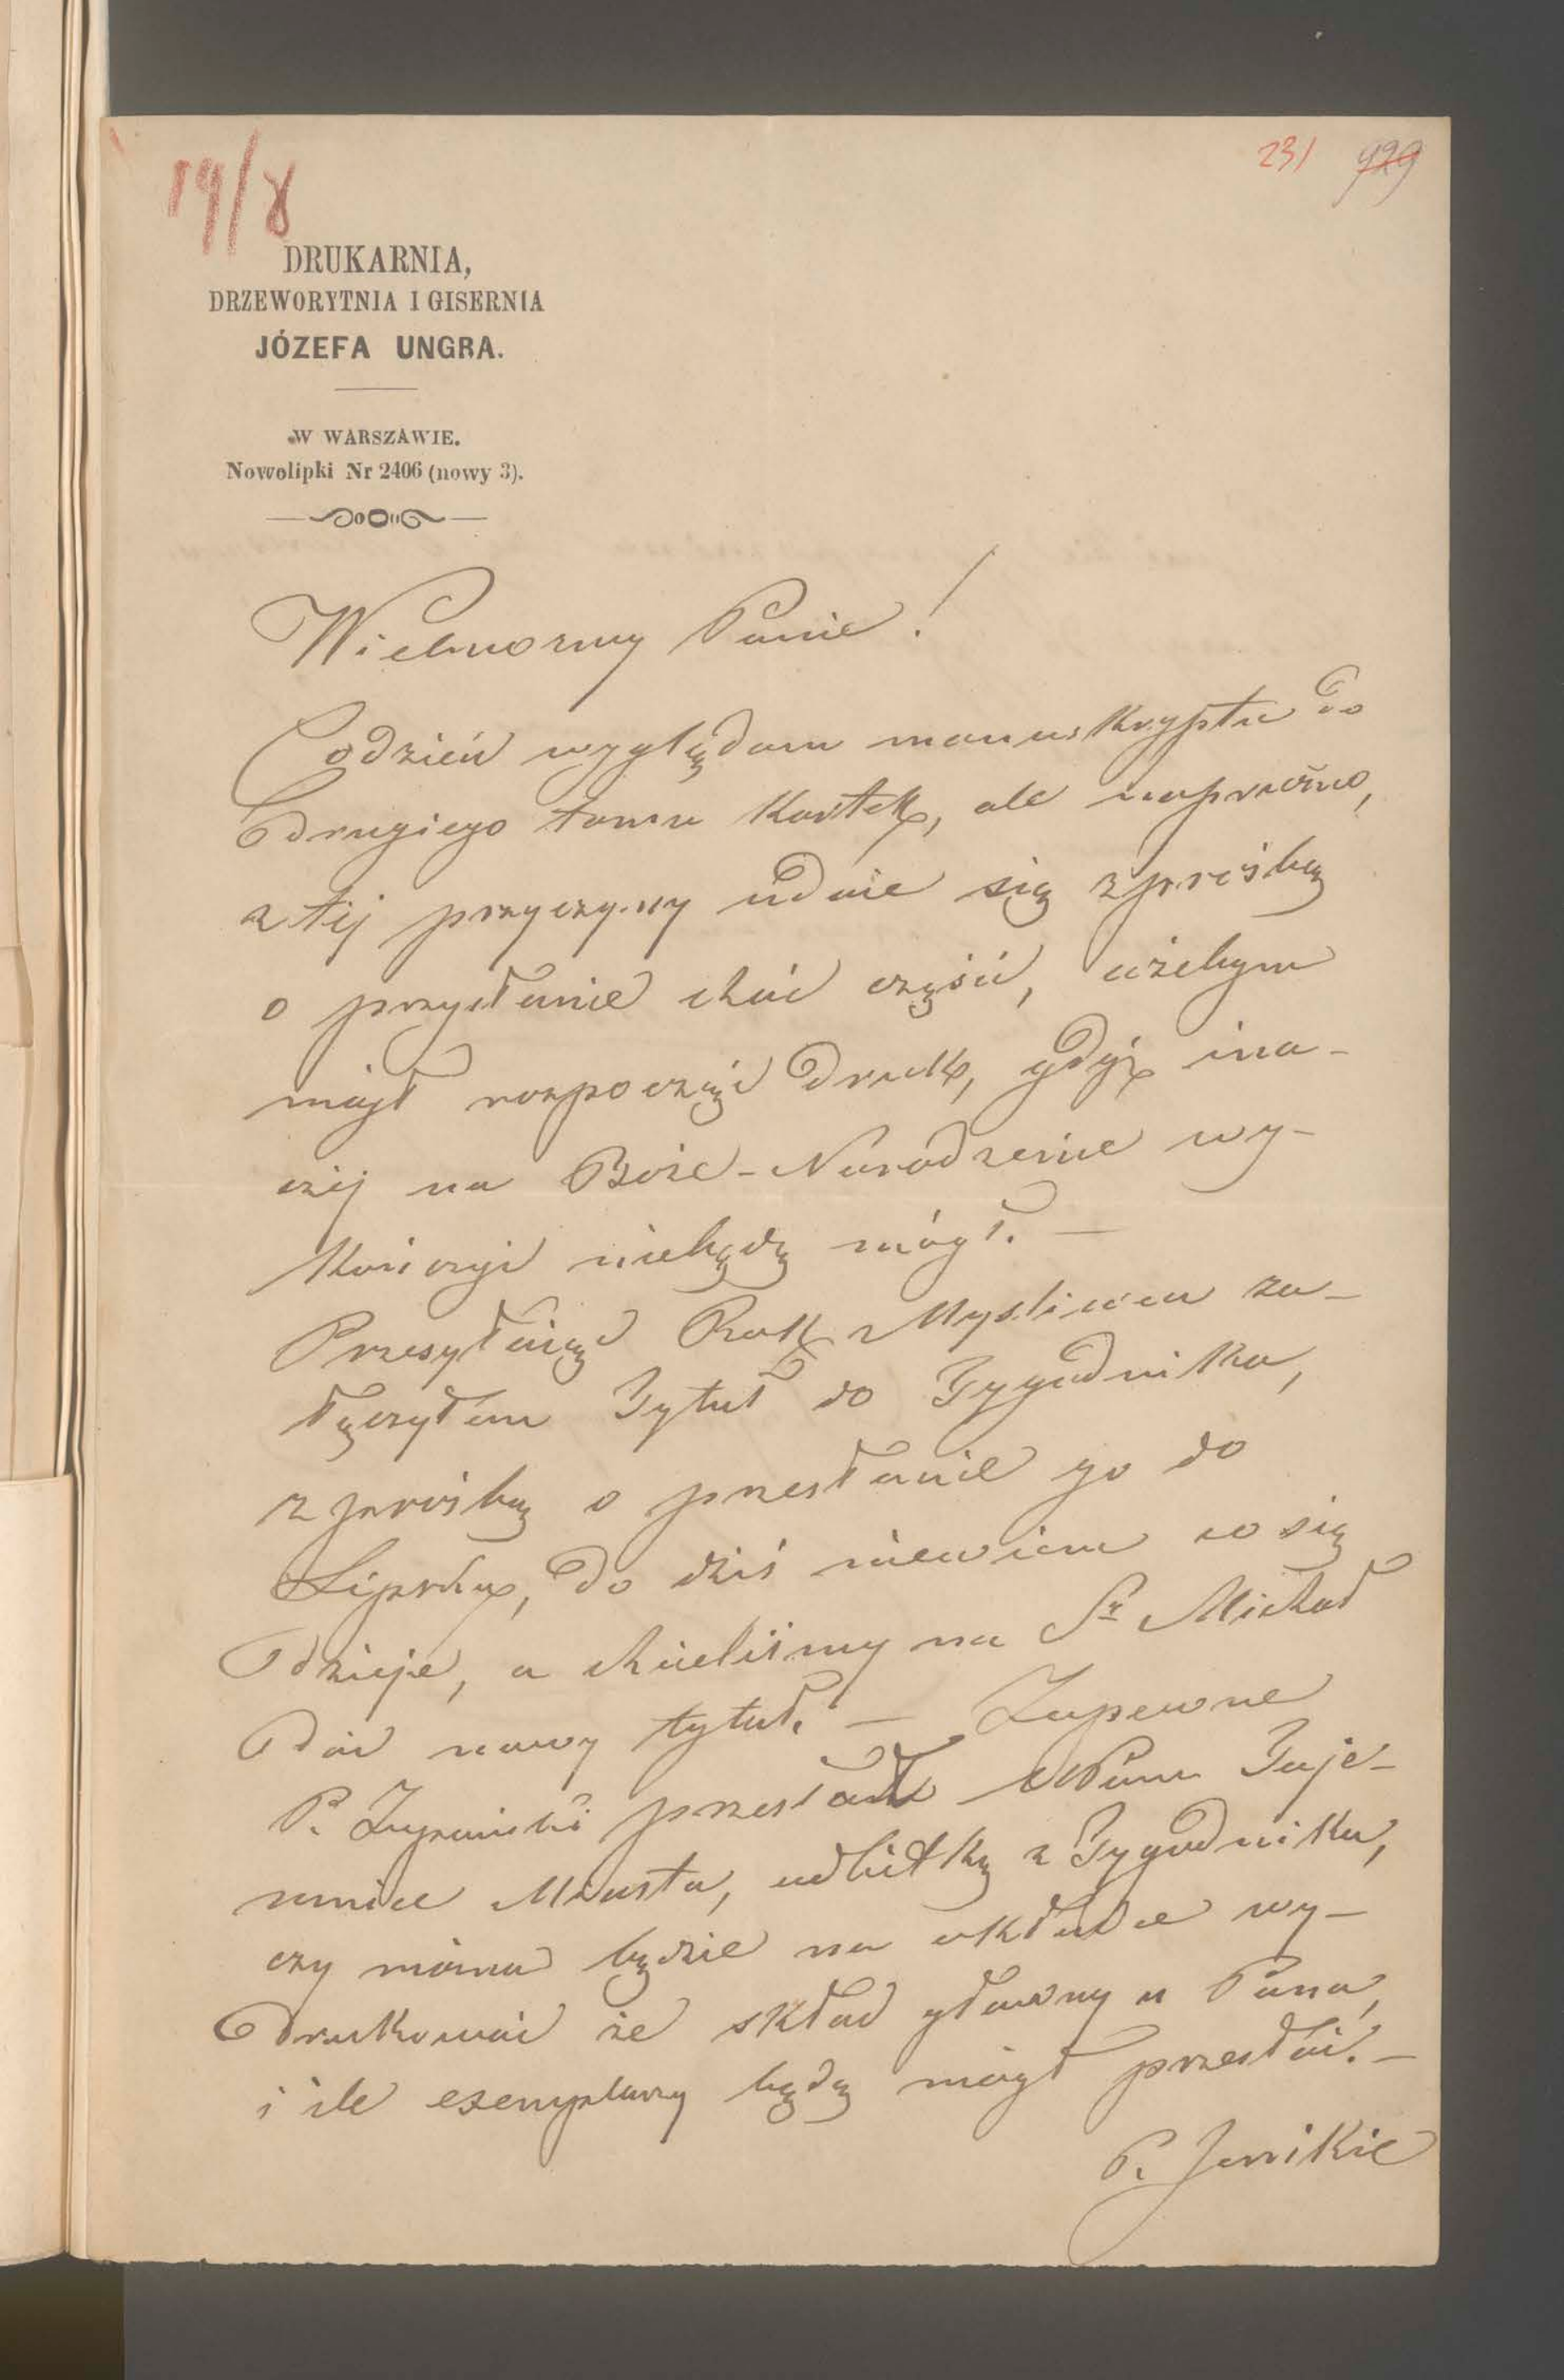 19/8
231 929
DRUKARNIA,
DRZEWORYTNIA I GISERNIA
JÓZEFA UNGRA.
W WARSZAWIE.
Nowolipki Nr 2406 (nowy 3).
Wielmożny Panie!
Codzień wyglądam manuskryptu do
drugiego tomu Kartek, ale napróżno,
z tej przyczyny udaie się z prośbą
o przysłanie choć część, ażebym
mógł rozpocząć druk, gdyż ina-
czéj na Boże-Narodzenie wy-
kończyć niebędę mógł. —
Przesyłając Rok Myśliwca za-
łączyłem Tytuł do Tygodnika,
z prośbą o przesłanie go do
Lipska, do dziś niewiem co się
dzieje, a chcieliśmy na Sr Michał
dać nowy tytuł. — Zapewne
P. przesłał WPanu Taje-
mnice Miasta, odbitkę z Tygodnika,
czy można będzie na okładce wy-
drukować że skład główny u Pana,
i ile exemplarzy będę mógł przesłać. —
P. Jenikie